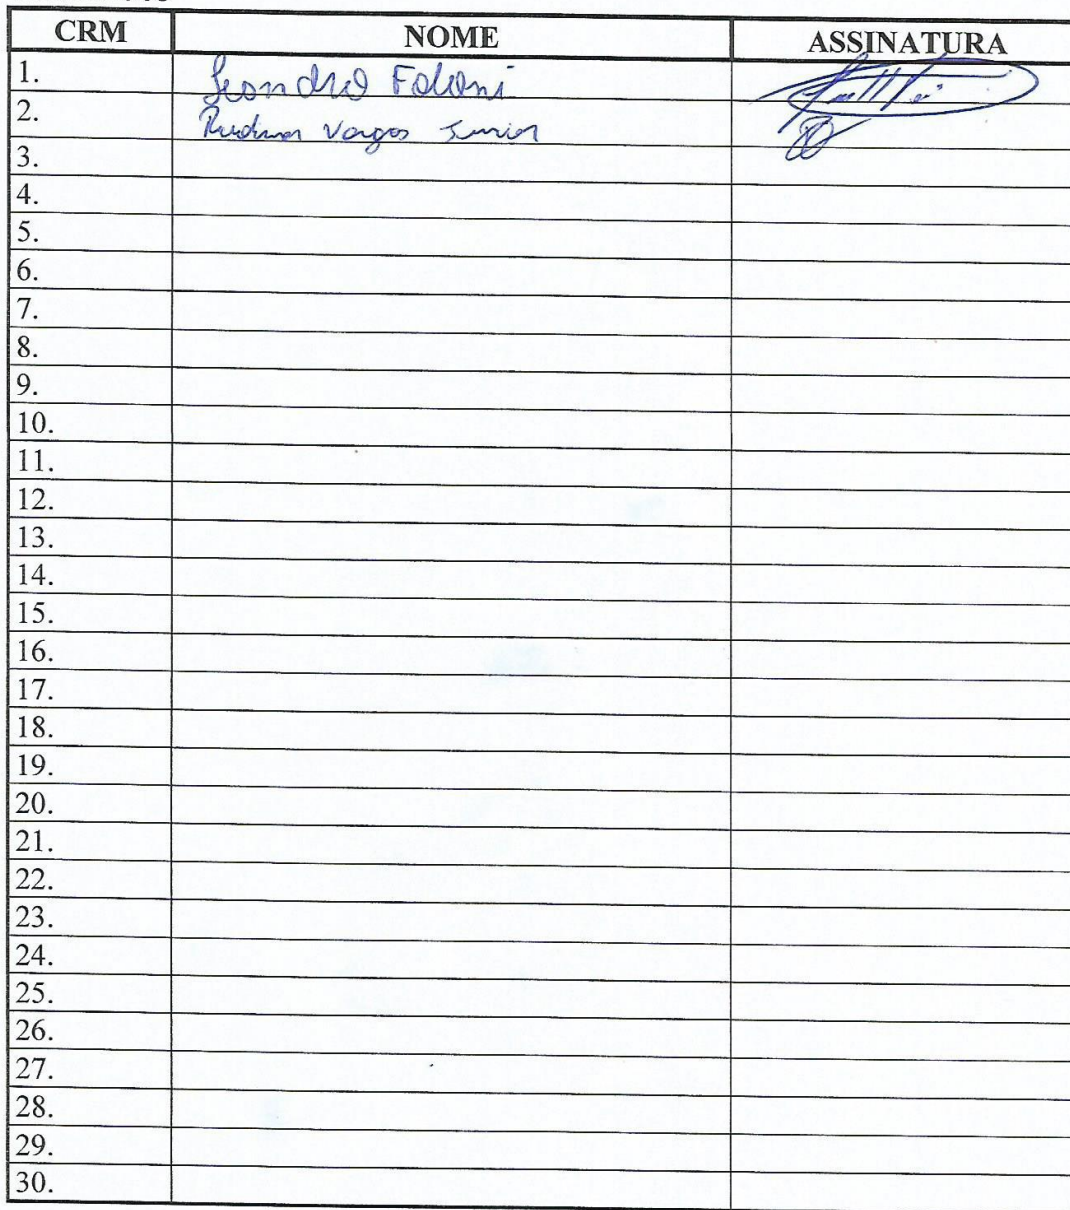 CRM NOME ASSINATURA
1. Leandro
2. Vargas Junior
3.
4.
5.
6.
7.
8.
9.
10.
11.
12.
13.
14.
15.
16.
17.
18.
19.
20.
21.
22.
23.
24.
25.
26.
27.
28.
29.
30.